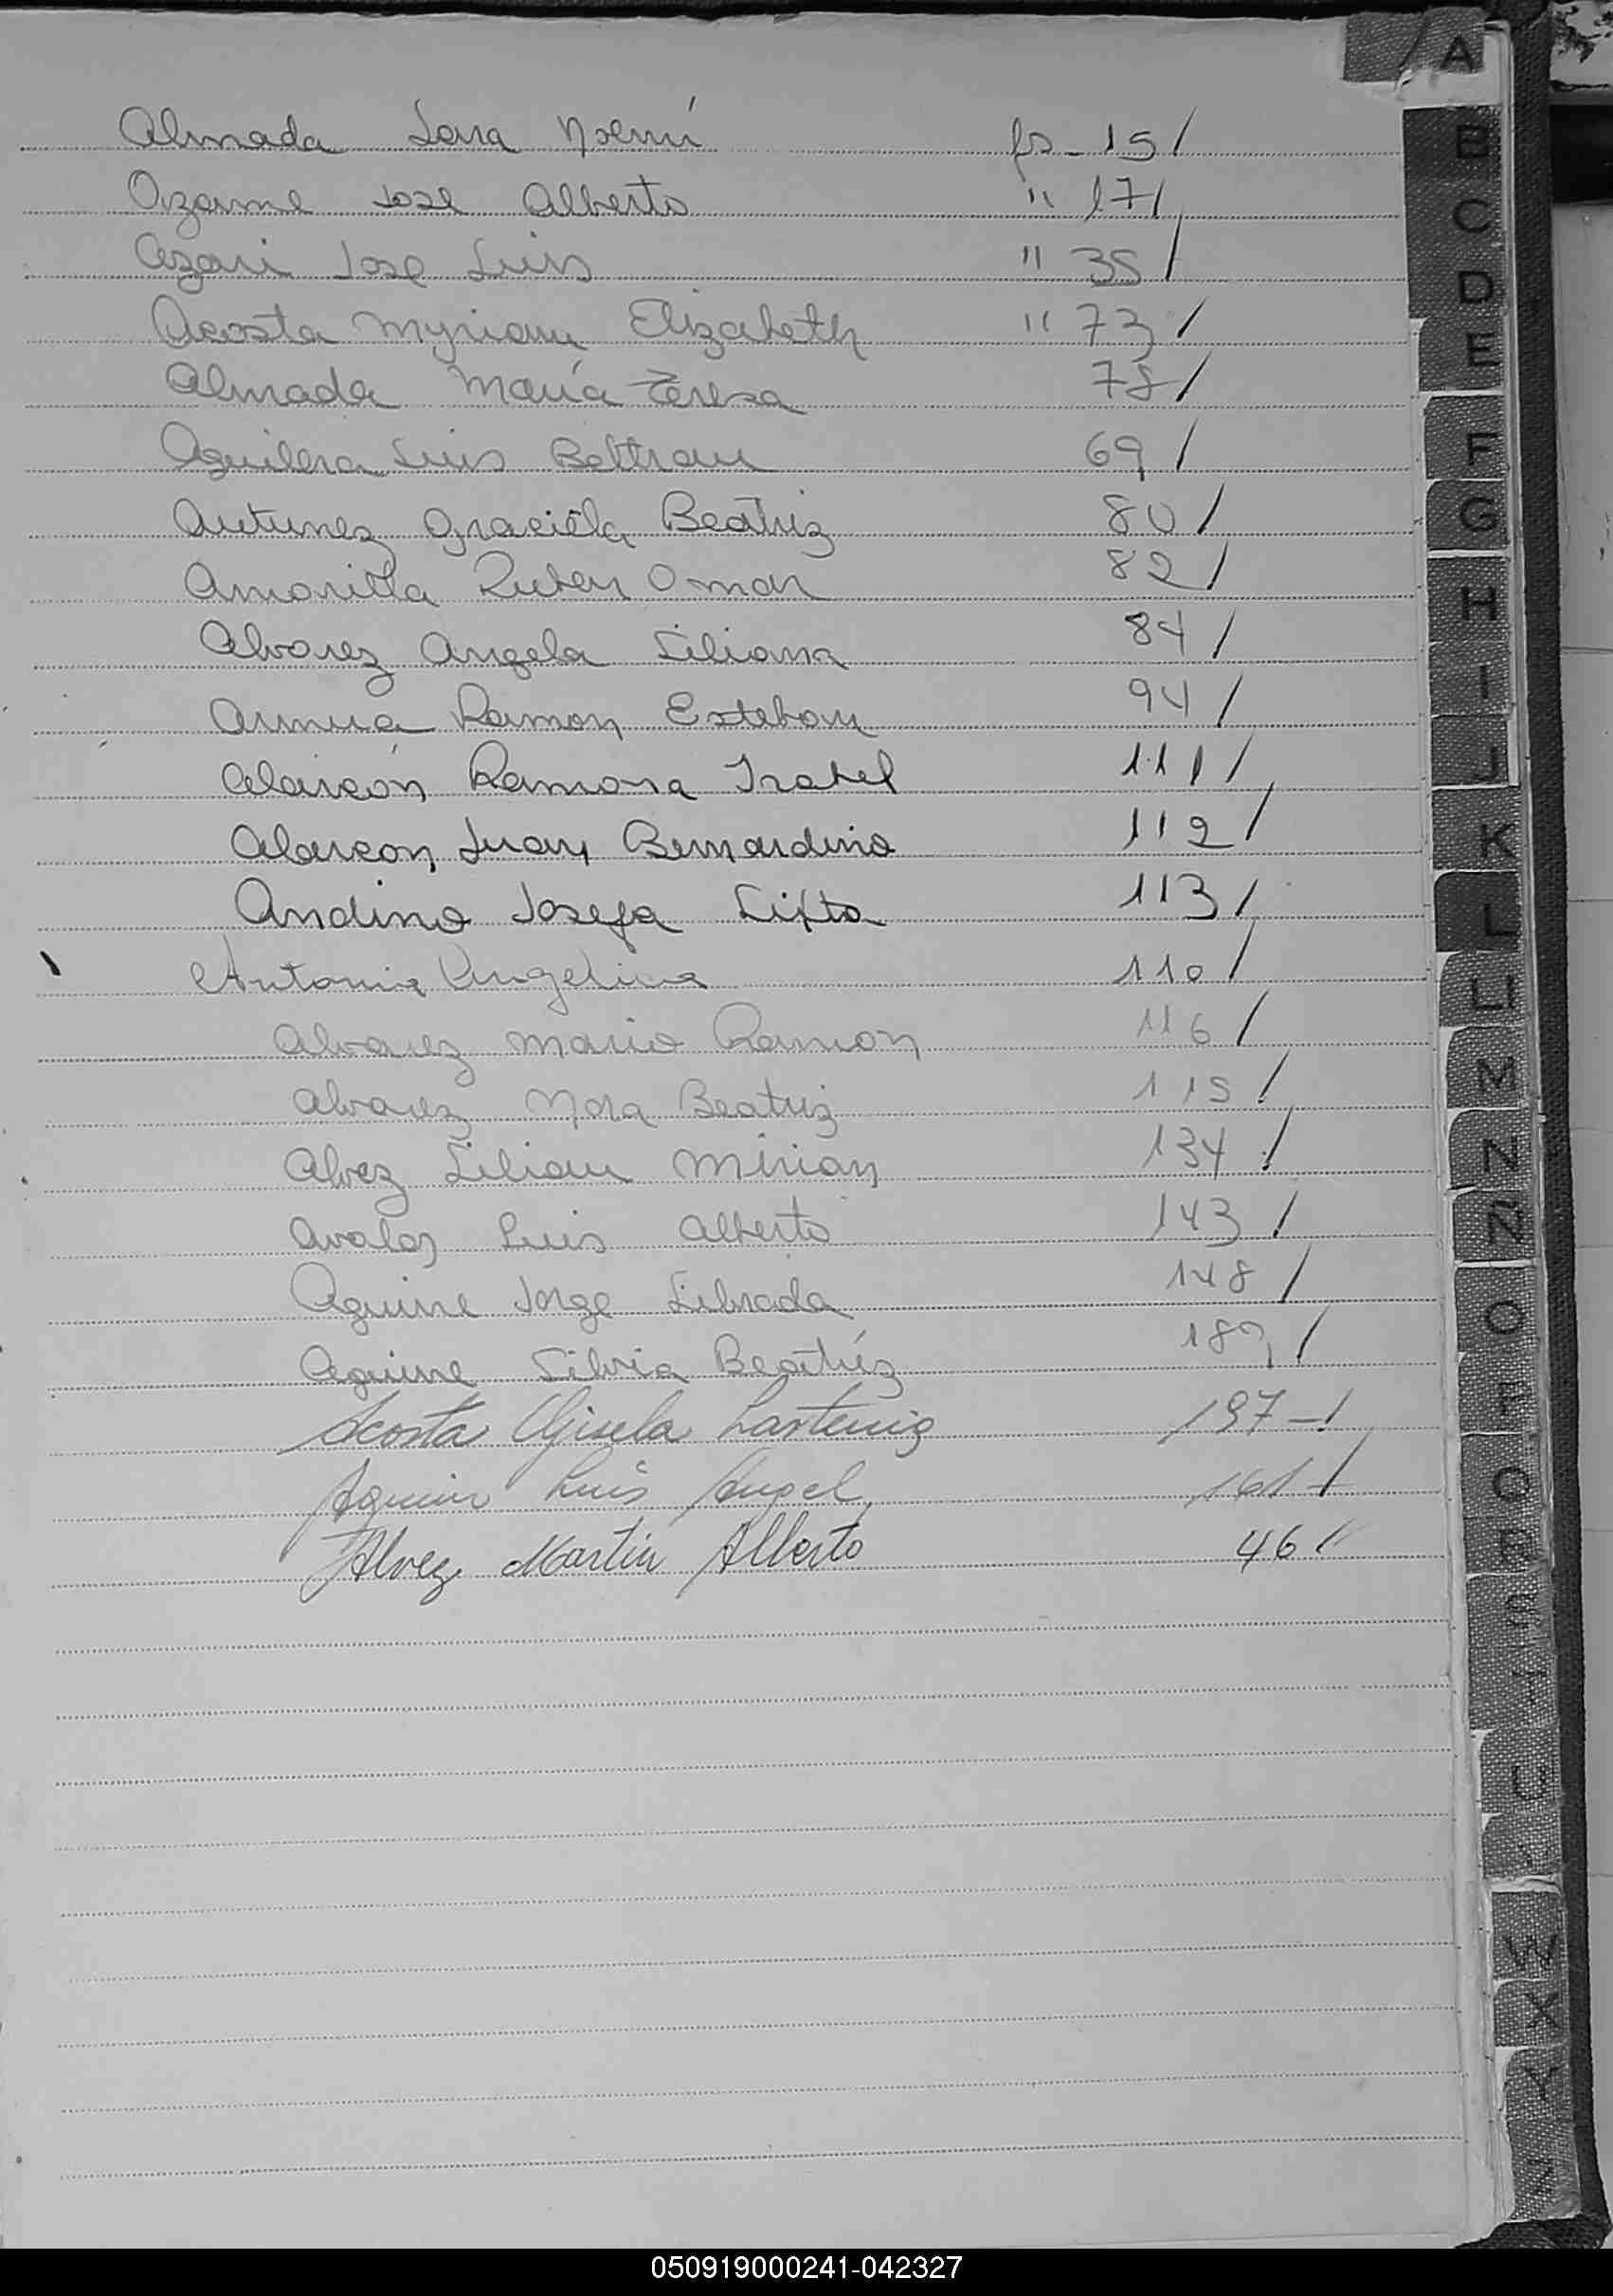 Almada Sara Noemí fs - 15 /
Ozarme Jose Alberto " 17 /
Azari Jose Luis " 35 /
Acosta Myriam Elizabeth " 73 /
Almada María Teresa 78 /
Aguilera Luis Beltran 69 /
Antunez Graciela Beatriz 80 /
Amarilla Ruben Omar 82 /
Alvarez Angela Liliana 84 /
Armua Ramon Esteban 94 /
Alarcón Ramona Isabel 111 /
Alarcon Juan Bernardino 112 /
Andino Josefa Sixta 113 /
Antonia Angelica 110 /
Alvarez Mario Ramon 116 /
Alvarez Nora Beatriz 115 /
Alvez Lilian Mirian 134 /
Avalos Luis Alberto 143 /
Aguirre Jorge Librada 148 /
Aguirre Silvia Beatríz /
Acosta Gisela 197 - /
Aguirre Luis Angel 161 - /
Alvez Martin Alberto 46 //
A
B
C
D
E
F
G
H
I
J
K
L
LL
M
N
Ñ
O
P
Q
R
S
T
U
W
X
Y
050919000241-042327